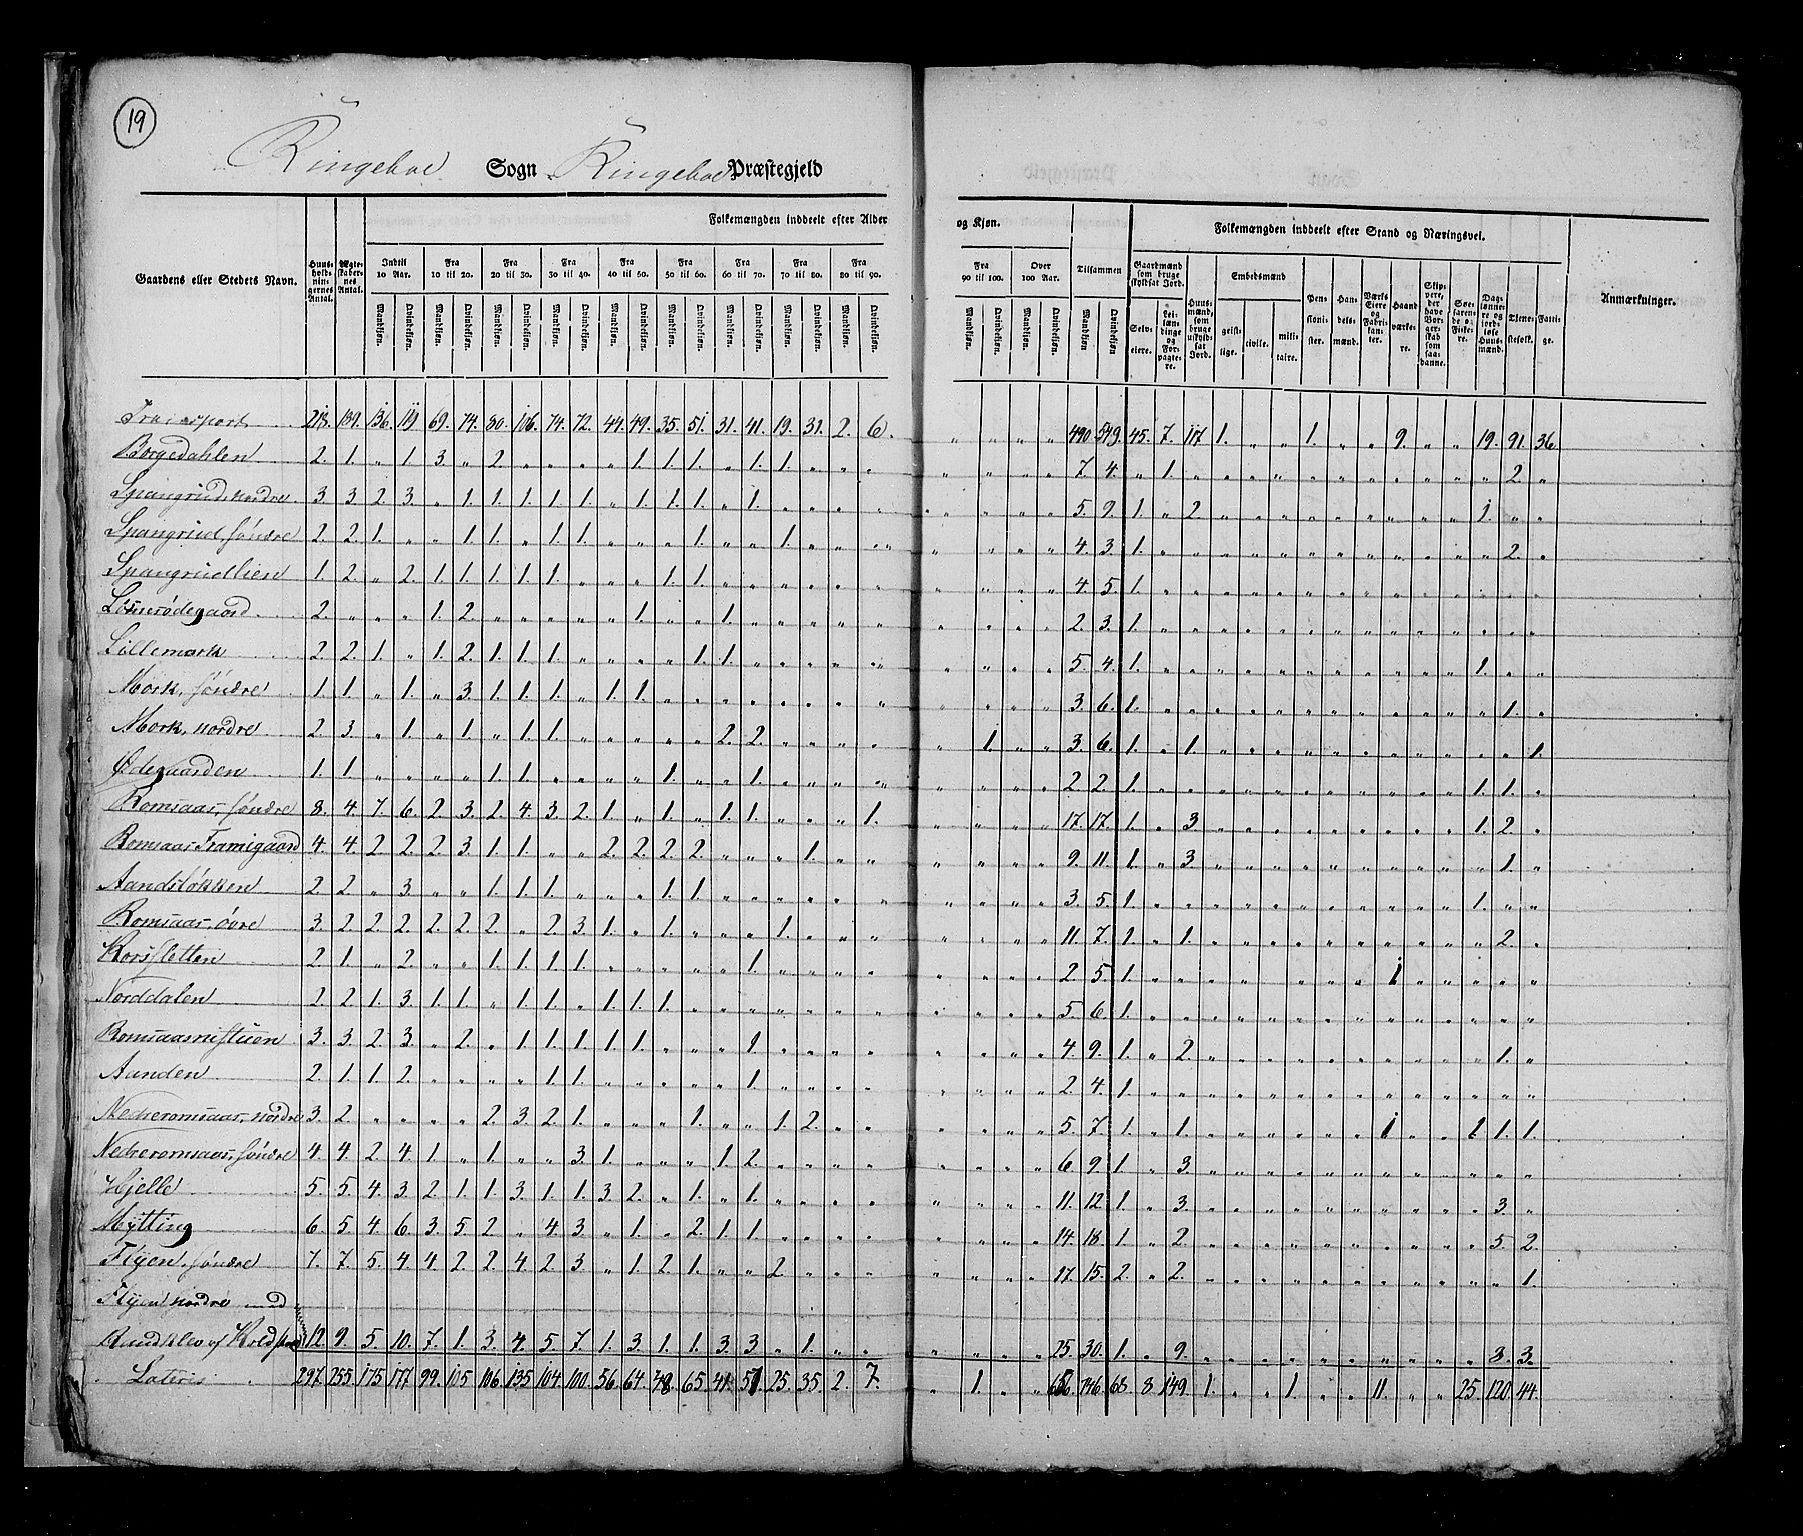 19
Ringeboe Sogn Ringeboe Præstegjeld
Gaardens eller Steders Navn. Huusholdningernes Antal. Ægteskabernes Antal. Folkemængden inddeelt efter Alder og Kjøn. Folkemængden inddeelt efter Stand og Næringsvei. Anmærkninger.
Indtil 10 Aar. Fra 10 til 20. Fra 20 til 30. Fra 30 til 40. Fra 40 til 50. Fra 50 til 60. Fra 60 til 70. Fra 70 til 80. Fra 80 til 90. Fra 90 til 100. Over 100 Aar. Tilsammen
Gaardmænd som bruge skyldsat Jord. Selveiere. Leilændinge og Forpagtere. Huusmænd, som bruge uskyldsat Jord. Embedsmænd geistlige. civile. militaire. Pensionister. Handelsmænd. Værks Eiere og Fabrikanter. Haandværkere. Slippere, der have Borgerskab som saadanne. Søefarende og Fiskere. Daglønnere og jordløse Huusmænd. Tienestefolk. Fattige.
Mandkjøn. Qvindekjøn. Mandkjøn. Qvindekjøn. Mandkjøn. Qvindekjøn. Mandkjøn. Qvindekjøn. Mandkjøn. Qvindekjøn. Mandkjøn. Qvindekjøn. Mandkjøn. Qvindekjøn. Mandkjøn. Qvindekjøn. Mandkjøn. Qvindekjøn. Mandkjøn. Qvindekjøn. Mandkjøn. Qvindekjøn. Mandkjøn Qvindekjøn
Transport 218. 189. 136. 119 69. 74. 80. 106. 74. 72. 44. 49. 35. 51. 31. 41. 19. 31. 2. 6. „ „ „ „ 490. 549. 45. 7. 117 1. „ „ 1. „ „ 9. „ „ 19. 91. 36
Borgedahlen 2. 1. „ 1. 3. „ 2. „ „ „ „ 1. 1. 1. „ 1. 1. „ „ „ „ „ „ „ 7. 4. „ 1. „ „ „ „ „ „ „ „ „ „ „ 2. „
Spangrud, nordre 3. 3. 2. 3. „ 1. 1. 1. 1. 1. „ 1. 1. 1. „ 1. „ „ „ „ „ „ „ „ 5. 9. 1. „ 2. „ „ „ „ „ „ „ „ „ 1. „ „
Spangrud söndre 2. 2. 1. „ „ 1. 1. „ 1. 1. „ „ „ 1. „ „ 1. „ „ „ „ „ „ „ 4. 3. 1. „ „ „ „ „ „ „ „ „ „ „ „ 2. „
Spangrudlien 1. 2. „ 2. 1. 1. 1. 1. 1. „ „ „ 1. 1. „ „ „ „ „ „ „ „ „ „ 4. 5. 1. „ „ „ „ „ „ „ „ „ „ „ „ „ „
2. „ „ „ 1. 2. „ „ „ „ „ 1. „ „ 1. „ „ „ „ „ „ „ „ „ 2. 3. 1. „ „ „ „ „ „ „ „ „ „ „ „ „ „
Lillemork 2. 2. 1. „ 1. 2. 1. 1. 1. „ „ „ „ 1. 1. „ „ „ „ „ „ „ „ „ 5. 4. 1. „ „ „ „ „ „ „ „ „ „ „ 1. „ „
Mork, söndre 1. 1. „ 1. „ 3. 1. 1. 1. „ 1. 1. „ „ „ „ „ „ „ „ „ „ „ „ 3. 6. 1. „ „ „ „ „ „ „ „ „ „ „ „ 1. „
Mork, nordre 2. 3. „ 1. „ 1. „ 1. 1. „ „ „ „ „ 2. 2. „ „ „ „ „ 1. „ „ 3. 6. 1. „ 1. „ „ „ „ „ „ „ „ „ „ „ 1.
Ödegaarden 1. 1. „ „ „ „ 1. 1. „ „ „ „ 1. „ „ 1. „ „ „ „ „ „ „ „ 2 2. 1. „ „ „ „ „ „ „ „ „ „ „ 1. 1. „
Romsaas, söndre 8. 4. 7. 6. 2. 3. 2. 4. 3. 2. 1. „ 1. „ 1. 1. „ „ „ 1. „ „ „ „ 17. 17. 1. „ 3. „ „ „ „ „ „ „ „ „ 1. 2. „
Romsaas Framigaard 4. 4. 2 2. 2. 3. 1. 1. „ „ 2. 2. 2. 2. „ „ „ 1. „ „ „ „ „ „ 9. 11. 1. „ 3. „ „ „ „ „ „ „ „ „ „ 1. „
Aandslökken 2. 2. „ 3. „ „ 1. 1. 1. „ „ „ 1. 1. „ „ „ „ „ „ „ „ „ „ 3. 5. 1. „ „ „ „ „ „ „ „ „ „ „ 1. „ „
Romsaas, övre 3. 2. 2. 2. 2. 2. 2. „ 2. 3. 1. „ 1. „ „ „ 1. „ „ „ „ „ „ „ 11. 7. 1. „ 1. „ „ „ „ „ „ „ „ „ „ 2. „
Korssletten 2. 1. „ 2. „ „ 1. 1. 1. 1. „ „ „ „ „ 1. „ „ „ „ „ „ „ „ 2. 5. 1. „ „ „ „ „ „ „ „ 1 „ „ „ „ „
Norddalen 2. 2. 1. 3. 1. 1. „ 1. 1. „ 1. 1. 1. „ „ „ „ „ „ „ „ „ „ „ 5. 6. 1. „ „ „ „ „ „ „ „ „ „ „ „ „ „
Romsaasnistuen 3. 3. 2. 3. „ 2. „ 1. 1. 1. 1. 1. „ „ „ 1. „ „ „ „ „ „ „ „ 4. 9. 1. „ 2. „ „ „ „ „ „ „ „ „ „ 1. „
Aanden 2. 1. 1. 2. „ „ „ „ 1. 1. „ „ „ „ „ 1. „ „ „ „ „ „ „ „ 2. 4. 1. „ „ „ „ „ „ „ „ „ „ „ „ „ „
Nedreromsaas, nordre 3. 2. „ „ „ „ 2. 3. 2. 1. „ „ „ 1. „ „ 1. 2. „ „ „ „ „ „ 5. 7. 1. „ 1. „ „ „ „ „ „ 1 „ „ 1. 1. 1.
Nedreromsaas, söndre 4. 4. 2. 4. 1. „ 1. „ „ 3. 1. „ „ „ 1. 2. „ „ „ „ „ „ „ „ 6. 9. 1. „ 3. „ „ „ „ „ „ „ „ „ „ „ „
Hjelle 5. 5. 4. 3. 2. 1. 1. 3. 1. 1. 3. 2. „ 1. „ 1. „ „ „ „ „ „ „ „ 11. 12. 1. „ 3. „ „ „ „ „ „ „ „ „ „ 3. „
Mytting 6. 5. 4. 6. 3. 5. 2. „ 4. 3. „ 1. „ 2. 1. 1. „ „ „ „ „ „ „ „ 14. 18. 1. „ 2. „ „ „ „ „ „ „ „ „ „ 5. 2.
Flyen, söndre 7. 7. 5. 4. 4. 2. 2. 4. 2. 3. „ 1. 2. 1. „ „ 2. „ „ „ „ „ „ „ 17. 15. 2. „ 2. „ „ „ „ „ „ „ „ „ „ „ 1.
Flyen nordre med
Rundklev af 12. 9. 5. 10. 7. 1. 3. 4. 5. 7. 1. 3. 1. 1. 3. 3. „ 1. „ „ „ „ „ „ 25. 30. 1. „ 9. „ „ „ „ „ „ „ „ „ „ 3. 3.
Lateris 297. 255. 175. 177. 99. 105. 106. 135. 104. 100. 56. 64. 48. 65. 41. 51. 25. 35. 2. 7. „ 1. „ „ 746. 68. 8. 149. 1. „ „ 1. „ „ 11. „ „ 25. 120. 44.